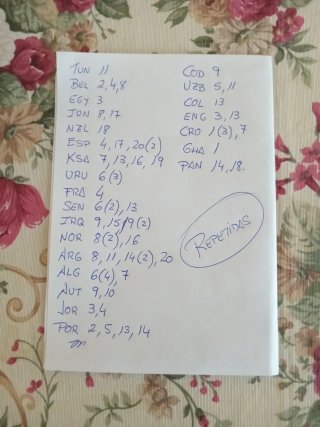 TUN 11
BEL 2,4,8
EGY 3
IRN 8,17
NZL 18
ESP 4,17,20(2)
KSA 7,13,16,19
URU 6(3)
FRA 4
SEN 6(2),13
IRQ 9,15,9(2)
NOR 8(2),16
ARG 8,11,14(2),20
ALG 6(4),7
AUT 9,10
JOR 3,4
POR 2,5,13,14
COD 9
UZB 5,11
COL 13
ENG 3,13
CRO 1(3),7
GHA 1
PAN 14,18.
REPETIDAS